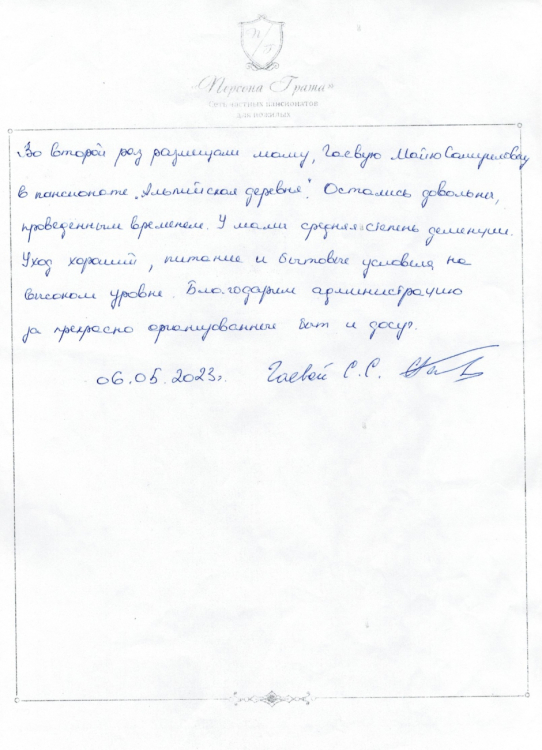 «Персона Грата»
Сеть частных пансионатов
для пожилых
Во второй раз размещали маму, Гаевую Майю Самуиловну
в пансионате „Альпийская деревня". Остались довольны,
проведенным временем. У мамы средняя степень деменции.
Уход хороший, питание и бытовые условия на
высоком уровне. Благодарим администрацию
за прекрасно организованные быт и досуг.
06.05.2023г. Гаевой С.С.